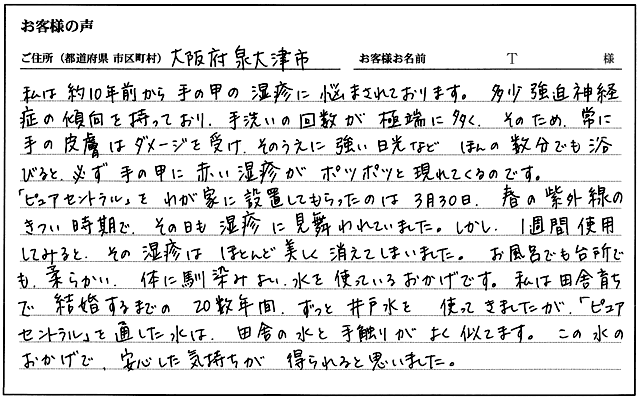 お客様の声
ご住所（都道府県 市区町村） 大阪府泉大津市 お客様お名前 T 様
私は約10年前から手の甲の湿疹に悩まされております。多少強迫神経
症の傾向を持っており、手洗いの回数が極端に多く、そのため、常に
手の皮膚はダメージを受け、そのうえに強い日光など ほんの数分でも浴
びると、必ず手の甲に赤い湿疹がポツポツと現れてくるのです。
「ピュアセントラル」をわが家に設置してもらったのは3月30日、春の紫外線の
きつい時期で、その日も湿疹に見舞われていました。しかし、1週間使用
してみると、その湿疹はほとんど美しく消えてしまいました。お風呂でも台所で
も、柔らかい、体に馴染みよい、水を使っているおかげです。私は田舎育ち
で結婚するまでの20数年間、ずっと井戸水を使ってきましたが、「ピュア
セントラル」を通した水は、田舎の水と手触りがよく似てます。この水の
おかげで、安心した気持ちが得られると思いました。